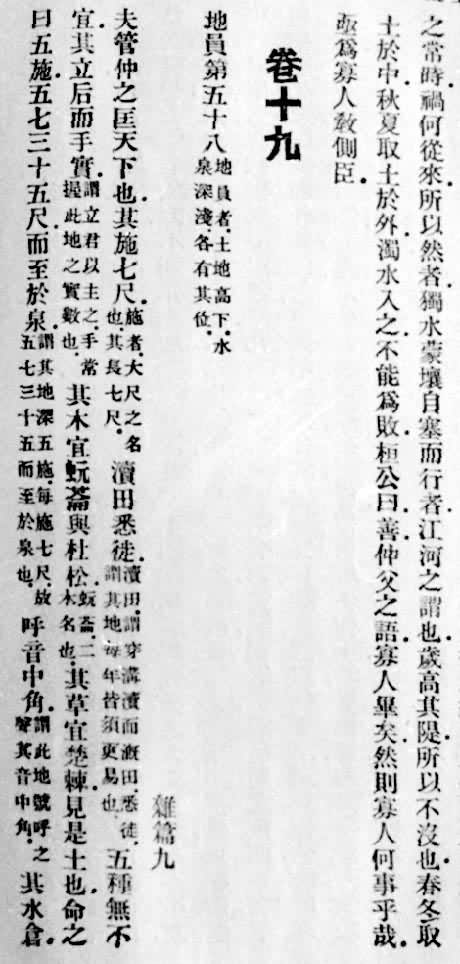 之常時禍何從來所以然者獨水蒙壤自塞而行者江河之謂也歲高其隄所以不沒也春冬取
土於中秋夏取土於外濁水入之不能爲敗桓公曰善仲父之語寡人畢矣然則寡人何事乎哉
亟爲寡人敎側臣
卷十九
地員第五十八地員者土地高下水泉深淺各有其位
雜篇九
夫管仲之匡天下也其施七尺施者大尺之名也其長七尺瀆田悉徙瀆田謂穿溝瀆而溉田悉徙謂其地每年皆須更易也五種無不
宜其立后而手實謂立君以主之手常握此地之實數也其木宜蚖菕與杜松蚖菕二木名也其草宜楚棘見是土也命之
曰五施五七三十五尺而至於泉謂其地深五施每施七尺故五七三十五而至於泉也呼音中角謂此地號呼之聲其音中角其水倉